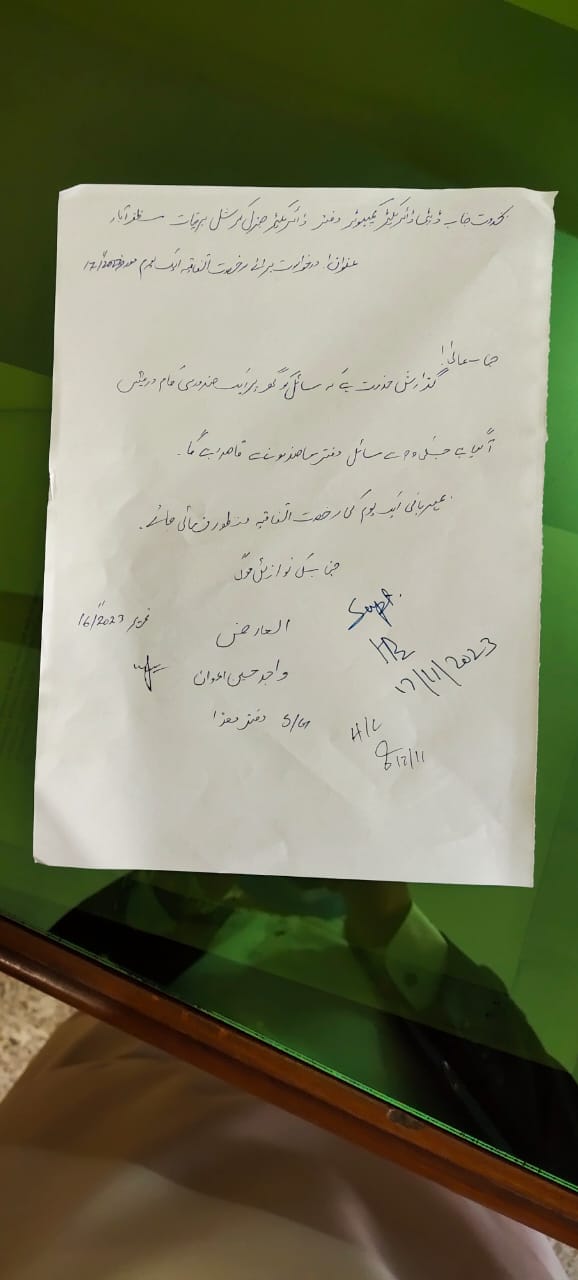 بخدمت جناب ڈپٹی ڈائریکٹر کمپیوٹر دفتر ڈائریکٹر جنرل کمرشل برقیات مظفرآباد
عنوان: درخواست برائے رخصت اتفاقیہ ایک یوم مورخہ 17/11/2023
جناب عالی!
گذارش خدمت ہے کہ سائل کو گھر پر ایک ضروری کام درپیش
آ گیا ہے جسکی وجہ سے سائل دفتر حاضر ہونے سے قاصر رہے گا۔
مہربانی ایک یوم کی رخصت اتفاقیہ منظور فرمائی جائے۔
عین نوازش ہوگی
العارض
تحریر 16/11/2023
واجد حسین اعوان
S/G دفتر ھذا
Supt.
17/11/2023
H/C
17/11